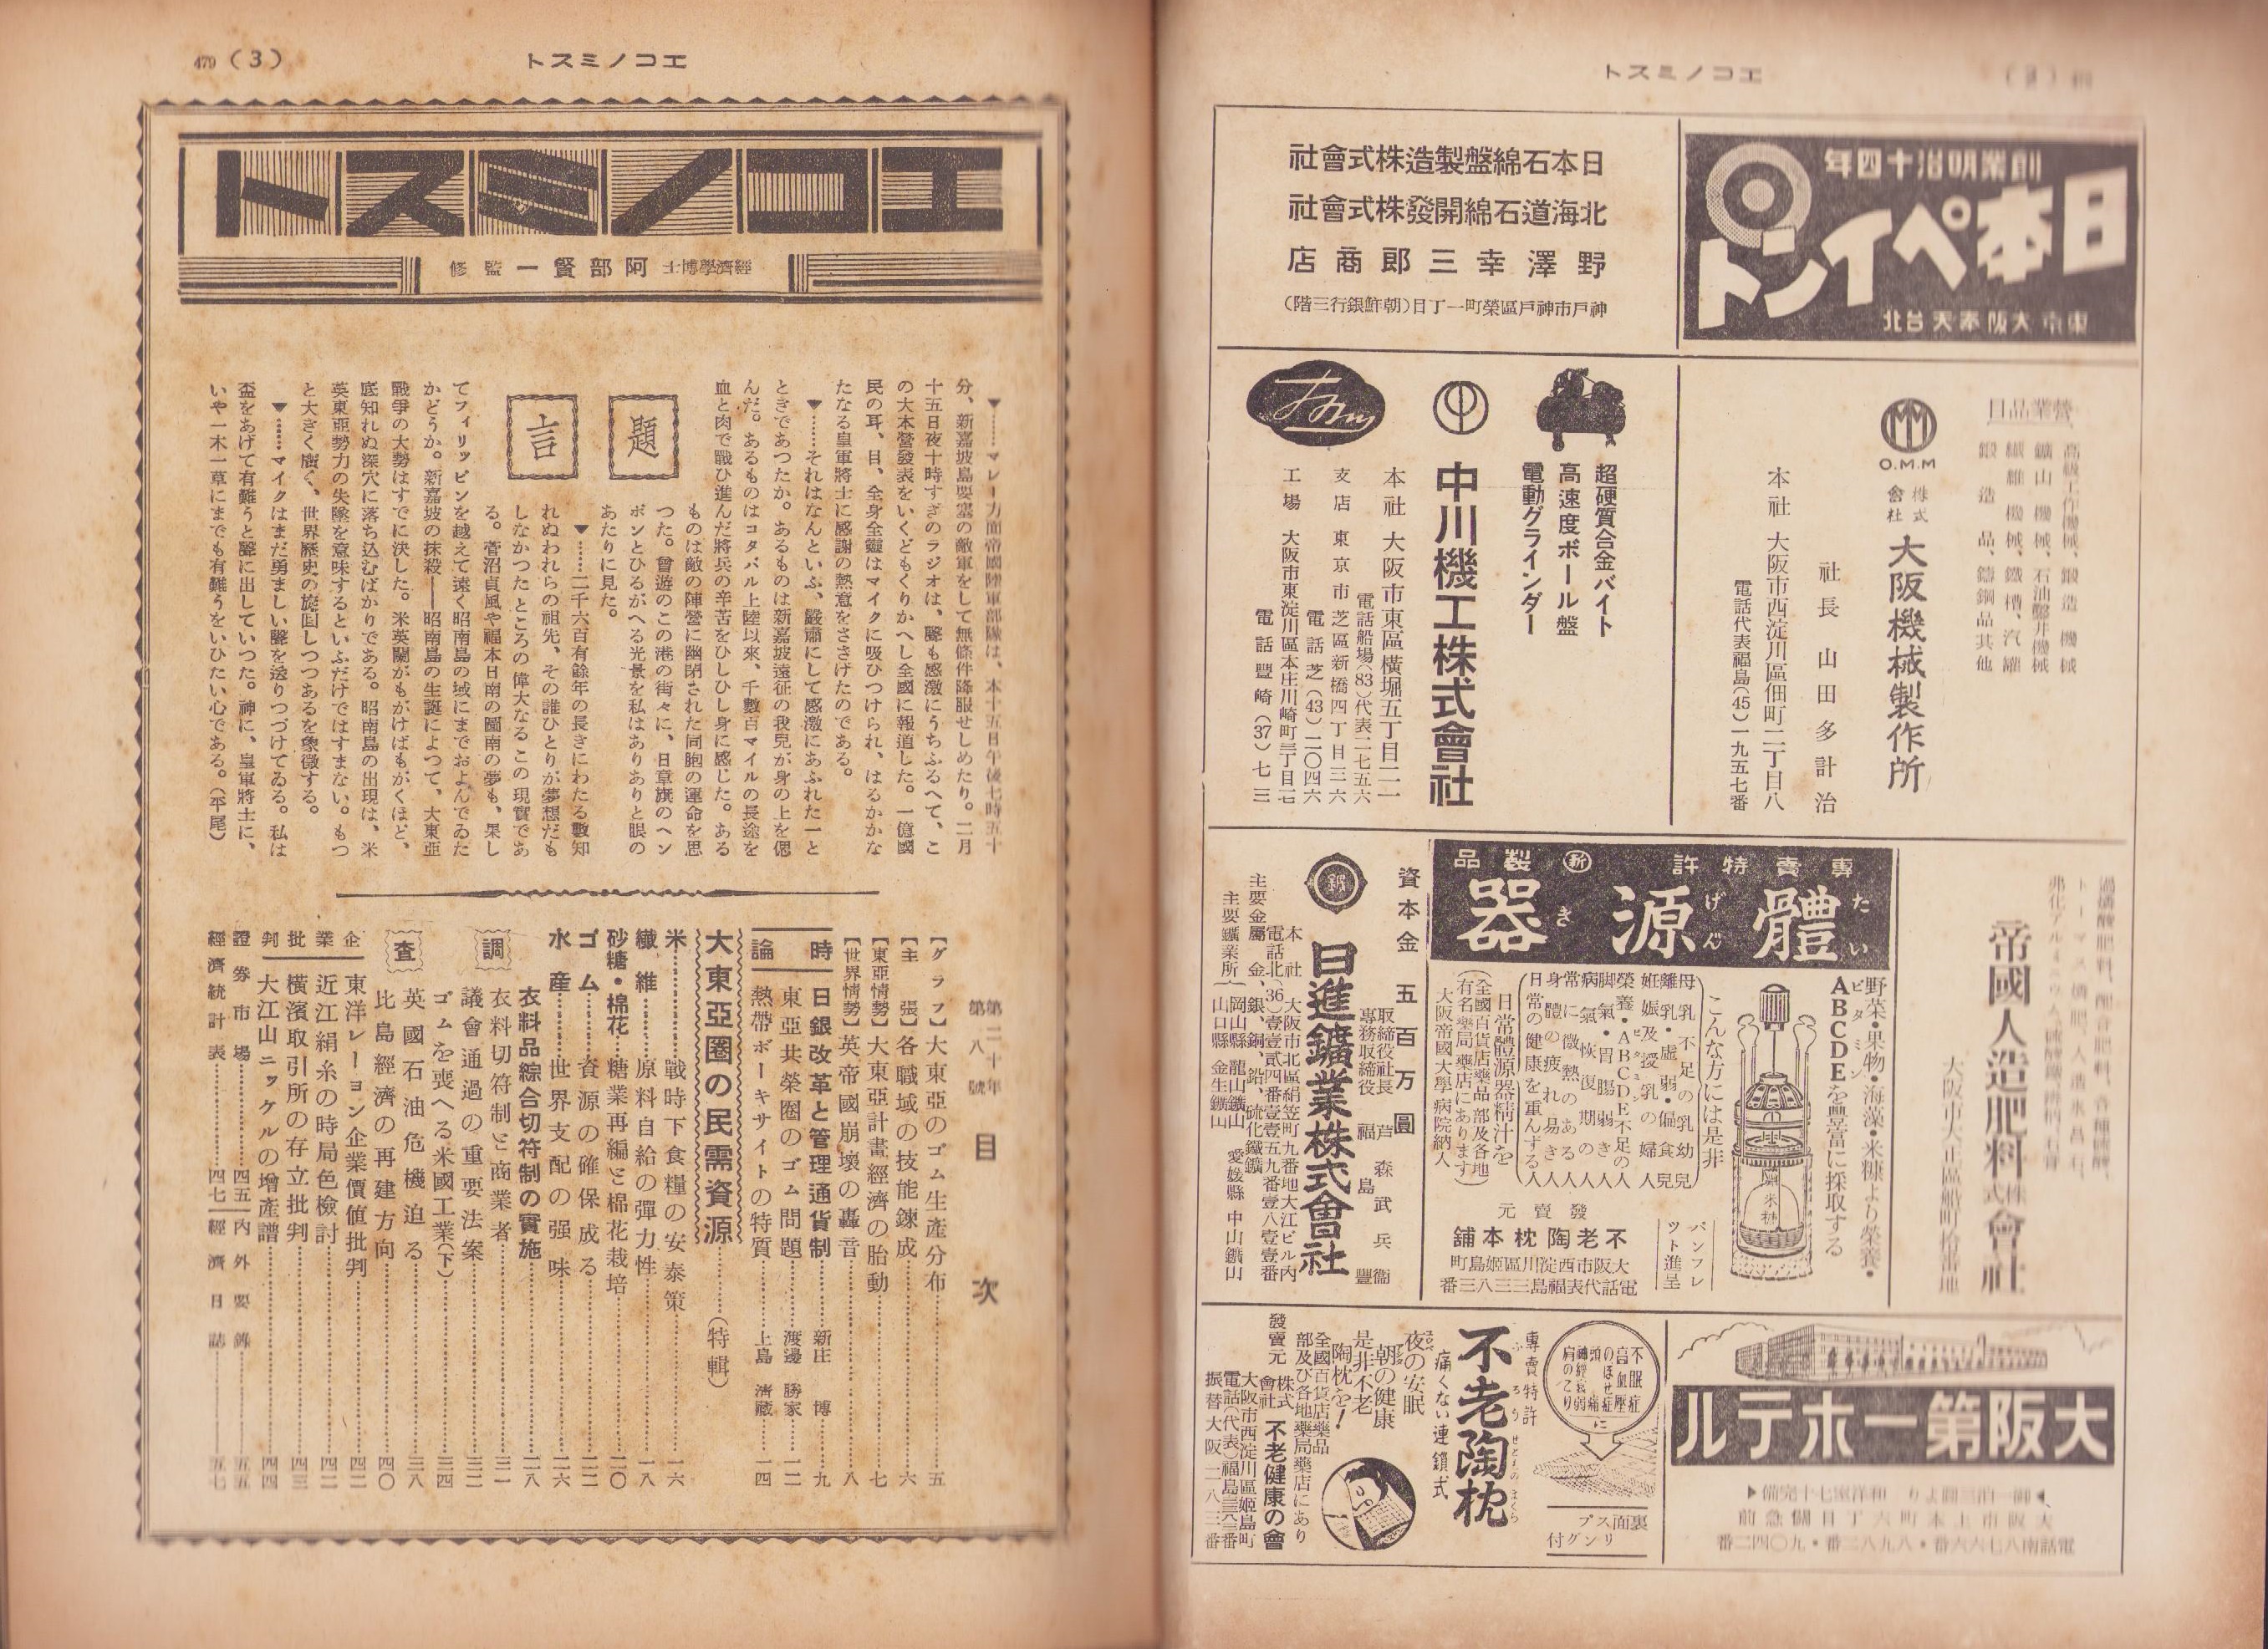 エコノミスト
創業明治十四年
日本ペイント
東京 大阪 奉天 台北
日本石綿盤製造株式會社
北海道石綿開發株式會社
野澤幸三郎商店
神戸市神戸區榮町一丁目(朝鮮銀行三階)
營業品目
高級工作機械、鍛造機械
鑛山機械、石油鑿井機械
纎維機械、鐵槽、汽罐
鍛造品、鑄鋼品其他
O.M.M
株式會社 大阪機械製作所
社長 山田多計治
本社 大阪市西淀川區佃町二丁目八
電話代表福島(45)一九五七番
超硬質合金バイト
高速度ボール盤
電動グラインダー
中川機工株式會社
本社 大阪市東區横堀五丁目二一
電話船場(83)代表二七五六
支店 東京市芝區新橋四丁目三六
電話芝(43)二〇四六
工場 大阪市東淀川區本庄川崎町三丁目一七
電話豐崎(37)七三
帝國人造肥料株式會社
大阪市大正區船町拾番地
專賣特許 新製品
體源器
たい げん き
野菜・果物・海藻・米糠より榮養・
ABCDEを豐富に採取する
ビタミン
こんな方には是非
母乳不足の乳幼兒
離乳・虚弱・偏食兒
妊娠及授乳の婦人
榮養・ABCDE不足の人
脚氣・胃腸弱き人
病氣恢復期の人
常に微熱のある人
身體の疲れ易き人
日常の健康を重んずる人
日常體源器精汁を
(全國百貨店藥品部及各地
有名藥局藥店にあります)
大阪帝國大學病院納入
パンフレツト進呈
發賣元
不老陶枕本舖
大阪市西淀川區姫島町
電話代表福島三三八三番
資本金 五百万圓
取締役社長 芦森武兵衞
專務取締役 福島豐
日進鑛業株式會社
本社 大阪市北區絹笠町九番地大江ビル内
電話北(36)壹壹貳四番壹壹五九番壹八壹壹番
主要金屬 金、銀、銅、鉛、硫化鐵鑛
主要鑛業所
岡山縣 龍山鑛山 愛媛縣 中山鑛山
山口縣 金生鑛山
大阪第一ホテル
御一泊三圓より 和洋室七十完備
大阪市上本町六丁目關急前
電話南八七六六番・八九八二番・九〇四二番
不眠症
高血壓症
のぼせ症
頭痛
神經衰弱
肩のこり
に
裏面スプリング付
專賣特許
不老陶枕
ふろう せとものまくら
痛くない連鎖式
夜の安眠
朝の健康
是非不老
陶枕を!
全國百貨店藥品
部及び各地藥局藥店にあり
發賣元 株式會社 不老健康の會
大阪市西淀川區姫島町
電話(代表)福島三三八三番
振替大阪二一八三番
479 (3)
エコノミスト
エコノミスト
經濟學博士 阿部賢一 監修
題言
▼……マレー方面帝國陸軍部隊は、本十五日午後七時五十
分、新嘉坡島要塞の敵軍をして無條件降服せしめたり。二月
十五日夜十時すぎのラジオは、聲も感激にうちふるへて、こ
の大本營發表をいくどもくりかへし全國に報道した。一億國
民の耳、目、全身全靈はマイクに吸ひつけられ、はるかかな
たなる皇軍將士に感謝の熱意をささげたのである。
▼……それはなんといふ、嚴肅にして感激にあふれた一と
ときであつたか。あるものは新嘉坡遠征の我兒が身の上を偲
んだ。あるものはコタバル上陸以來、千數百マイルの長途を
血と肉で戰ひ進んだ將兵の辛苦をひしひし身に感じた。ある
ものは敵の陣營に幽閉された同胞の運命を思
つた。曾遊のこの港の街々に、日章旗のヘン
ポンとひるがへる光景を私はありありと眼の
あたりに見た。
▼……二千六百有餘年の長きにわたる數知
れぬわれらの祖先、その誰ひとりが夢想だも
しなかつたところの偉大なるこの現實であ
る。菅沼貞風や福本日南の圖南の夢も、果し
てフィリッピンを越えて遠く昭南島の域にまでおよんでゐた
かどうか。新嘉坡の抹殺――昭南島の生誕によつて、大東亞
戰爭の大勢はすでに決した。米英闘がもがけばもがくほど、
底知れぬ深穴に落ち込むばかりである。昭南島の出現は、米
英東亞勢力の失墜を意味するといふだけではすまない。もつ
と大きく廣く、世界歴史の旋回しつつあるを象徴する。
▼……マイクはまだ勇ましい聲を送りつづけてゐる。私は
盃をあげて有難うと聲に出していつた。神に、皇軍將士に、
いや一木一草にまでも有難うをいひたい心である。(平尾)
第二十年
第八號
目次
【グラフ】大東亞のゴム生産分布……五
【主張】各職域の技能錬成……六
【東亞情勢】大東亞計畫經濟の胎動……七
【世界情勢】英帝國崩壞の轟音……八
時論
日銀改革と管理通貨制……新庄博……九
東亞共榮圈のゴム問題……渡邊勝家……一二
熱帶ボーキサイトの特質……上島清藏……一四
大東亞圈の民需資源……(特輯)
米……戰時下食糧の安泰策……一六
纎維……原料自給の彈力性……一八
砂糖・棉花……糖業再編と棉花栽培……二〇
ゴム……資源の確保成る……二二
水産……世界支配の强味……二六
衣料品綜合切符制の實施……二八
調査
衣料切符制と商業者……三一
議會通過の重要法案……三二
ゴムを喪へる米國工業(下)……三四
英國石油危機迫る……三八
比島經濟の再建方向……四〇
企業批判
東洋レーヨン企業價値批判……四二
近江絹糸の時局色檢討……四二
横濱取引所の存立批判……四三
大江山ニッケルの增産譜……四四
證券市場……四五
内外要錄……五五
經濟統計表……四七
經濟日誌……五七